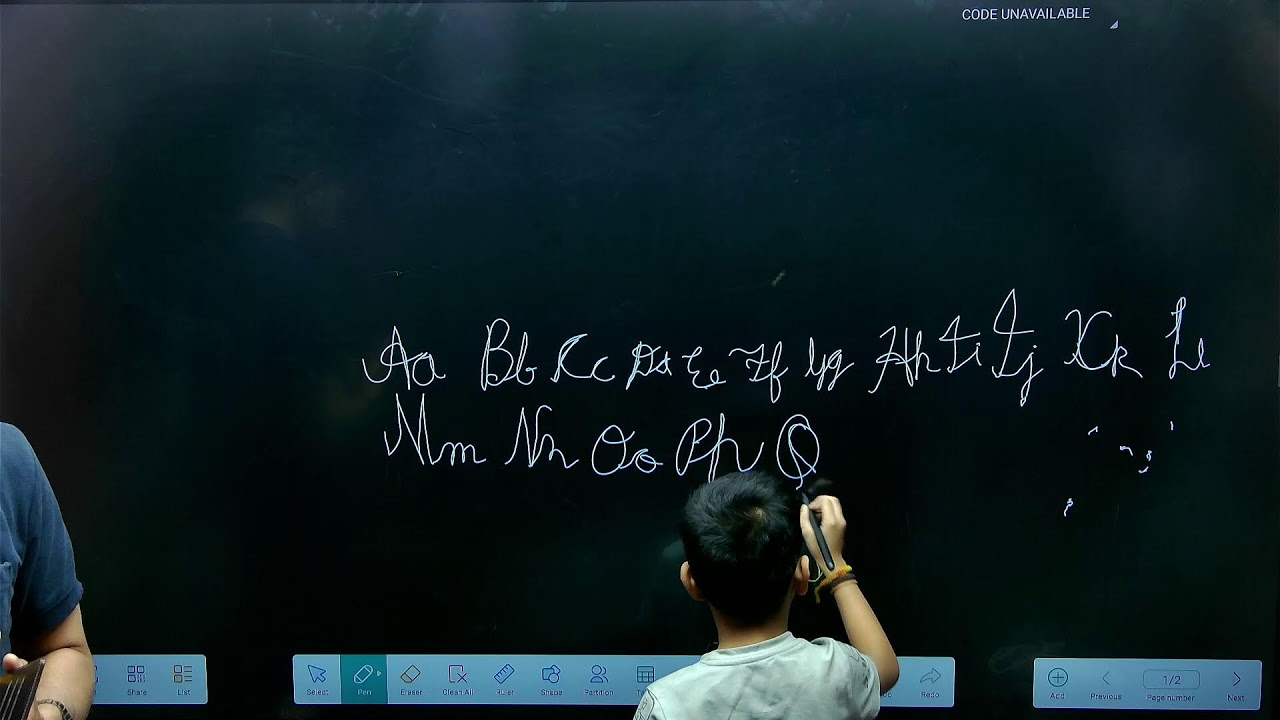 CODE UNAVAILABLE
Aa Bb Cc Dd Ee Ff Gg Hh Ii Jj Kk Ll
Mm Nn Oo Pp Q
Share List Select Pen Eraser Clean All Ruler Shape Partition Redo Add Previous 1/2 Page number Next